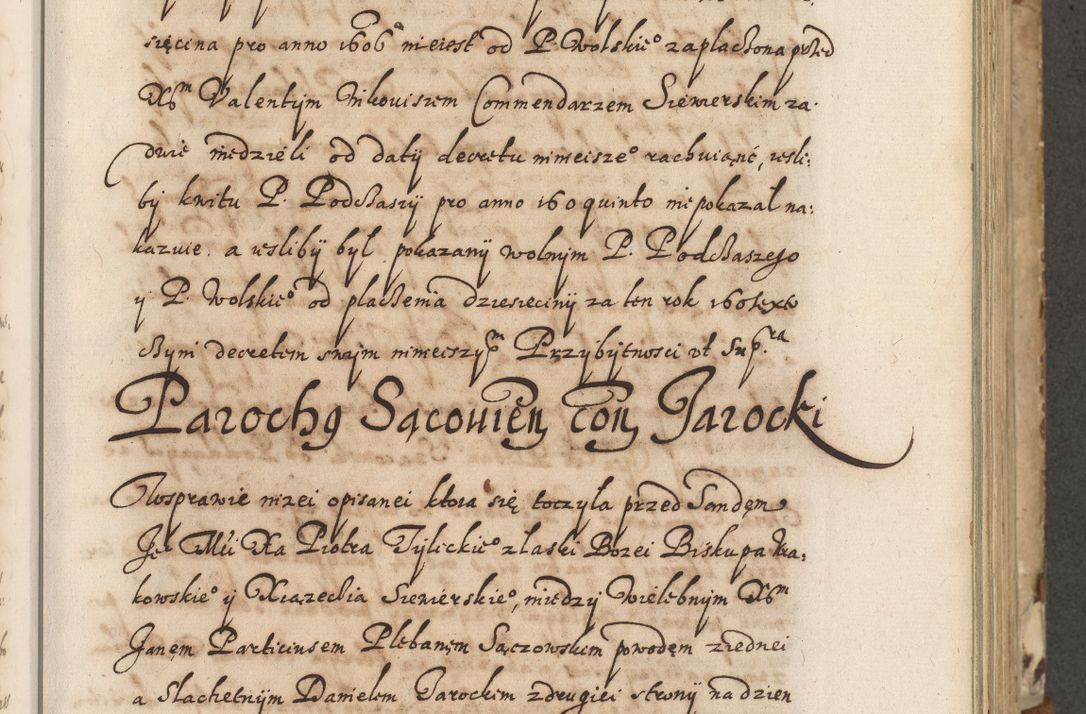 sięcina pro anno 1606° nieiest od P. Wolskie° zapłaczona przed
Xb^m Valentym Commendarzem Siewierskim za.
dwie niedzieli od daty decretu ninieisze° rachuiąnć, iesli:
by kwitu P. Podczaszy pro anno 160quinto niepokazał na:
kazuie. a iesliby był pokazany wolnym P. Podczaszego
y P. Wolskie° od płaczenia dziesięciny za ten rok 160sexto
czyni decretem swym ninieiszy^m Przybytnosci vt Sup.^ra
Parochg Sącouien con Jarocki
Wsprawie nizei opisanei ktora się toczyła przed Sandęm
Je° Mći Xa Piotra Tylickie° złaski Bozei Biskupa kra:
kowskie° y Xiązęcia Siewierskie°, między Wielebnym Xb^m
Janęm Particiusem Plebanęm Sączowskim powodęm ziednei
a Slachetnym Danielem Jarockim zdrugiei strony nadzien